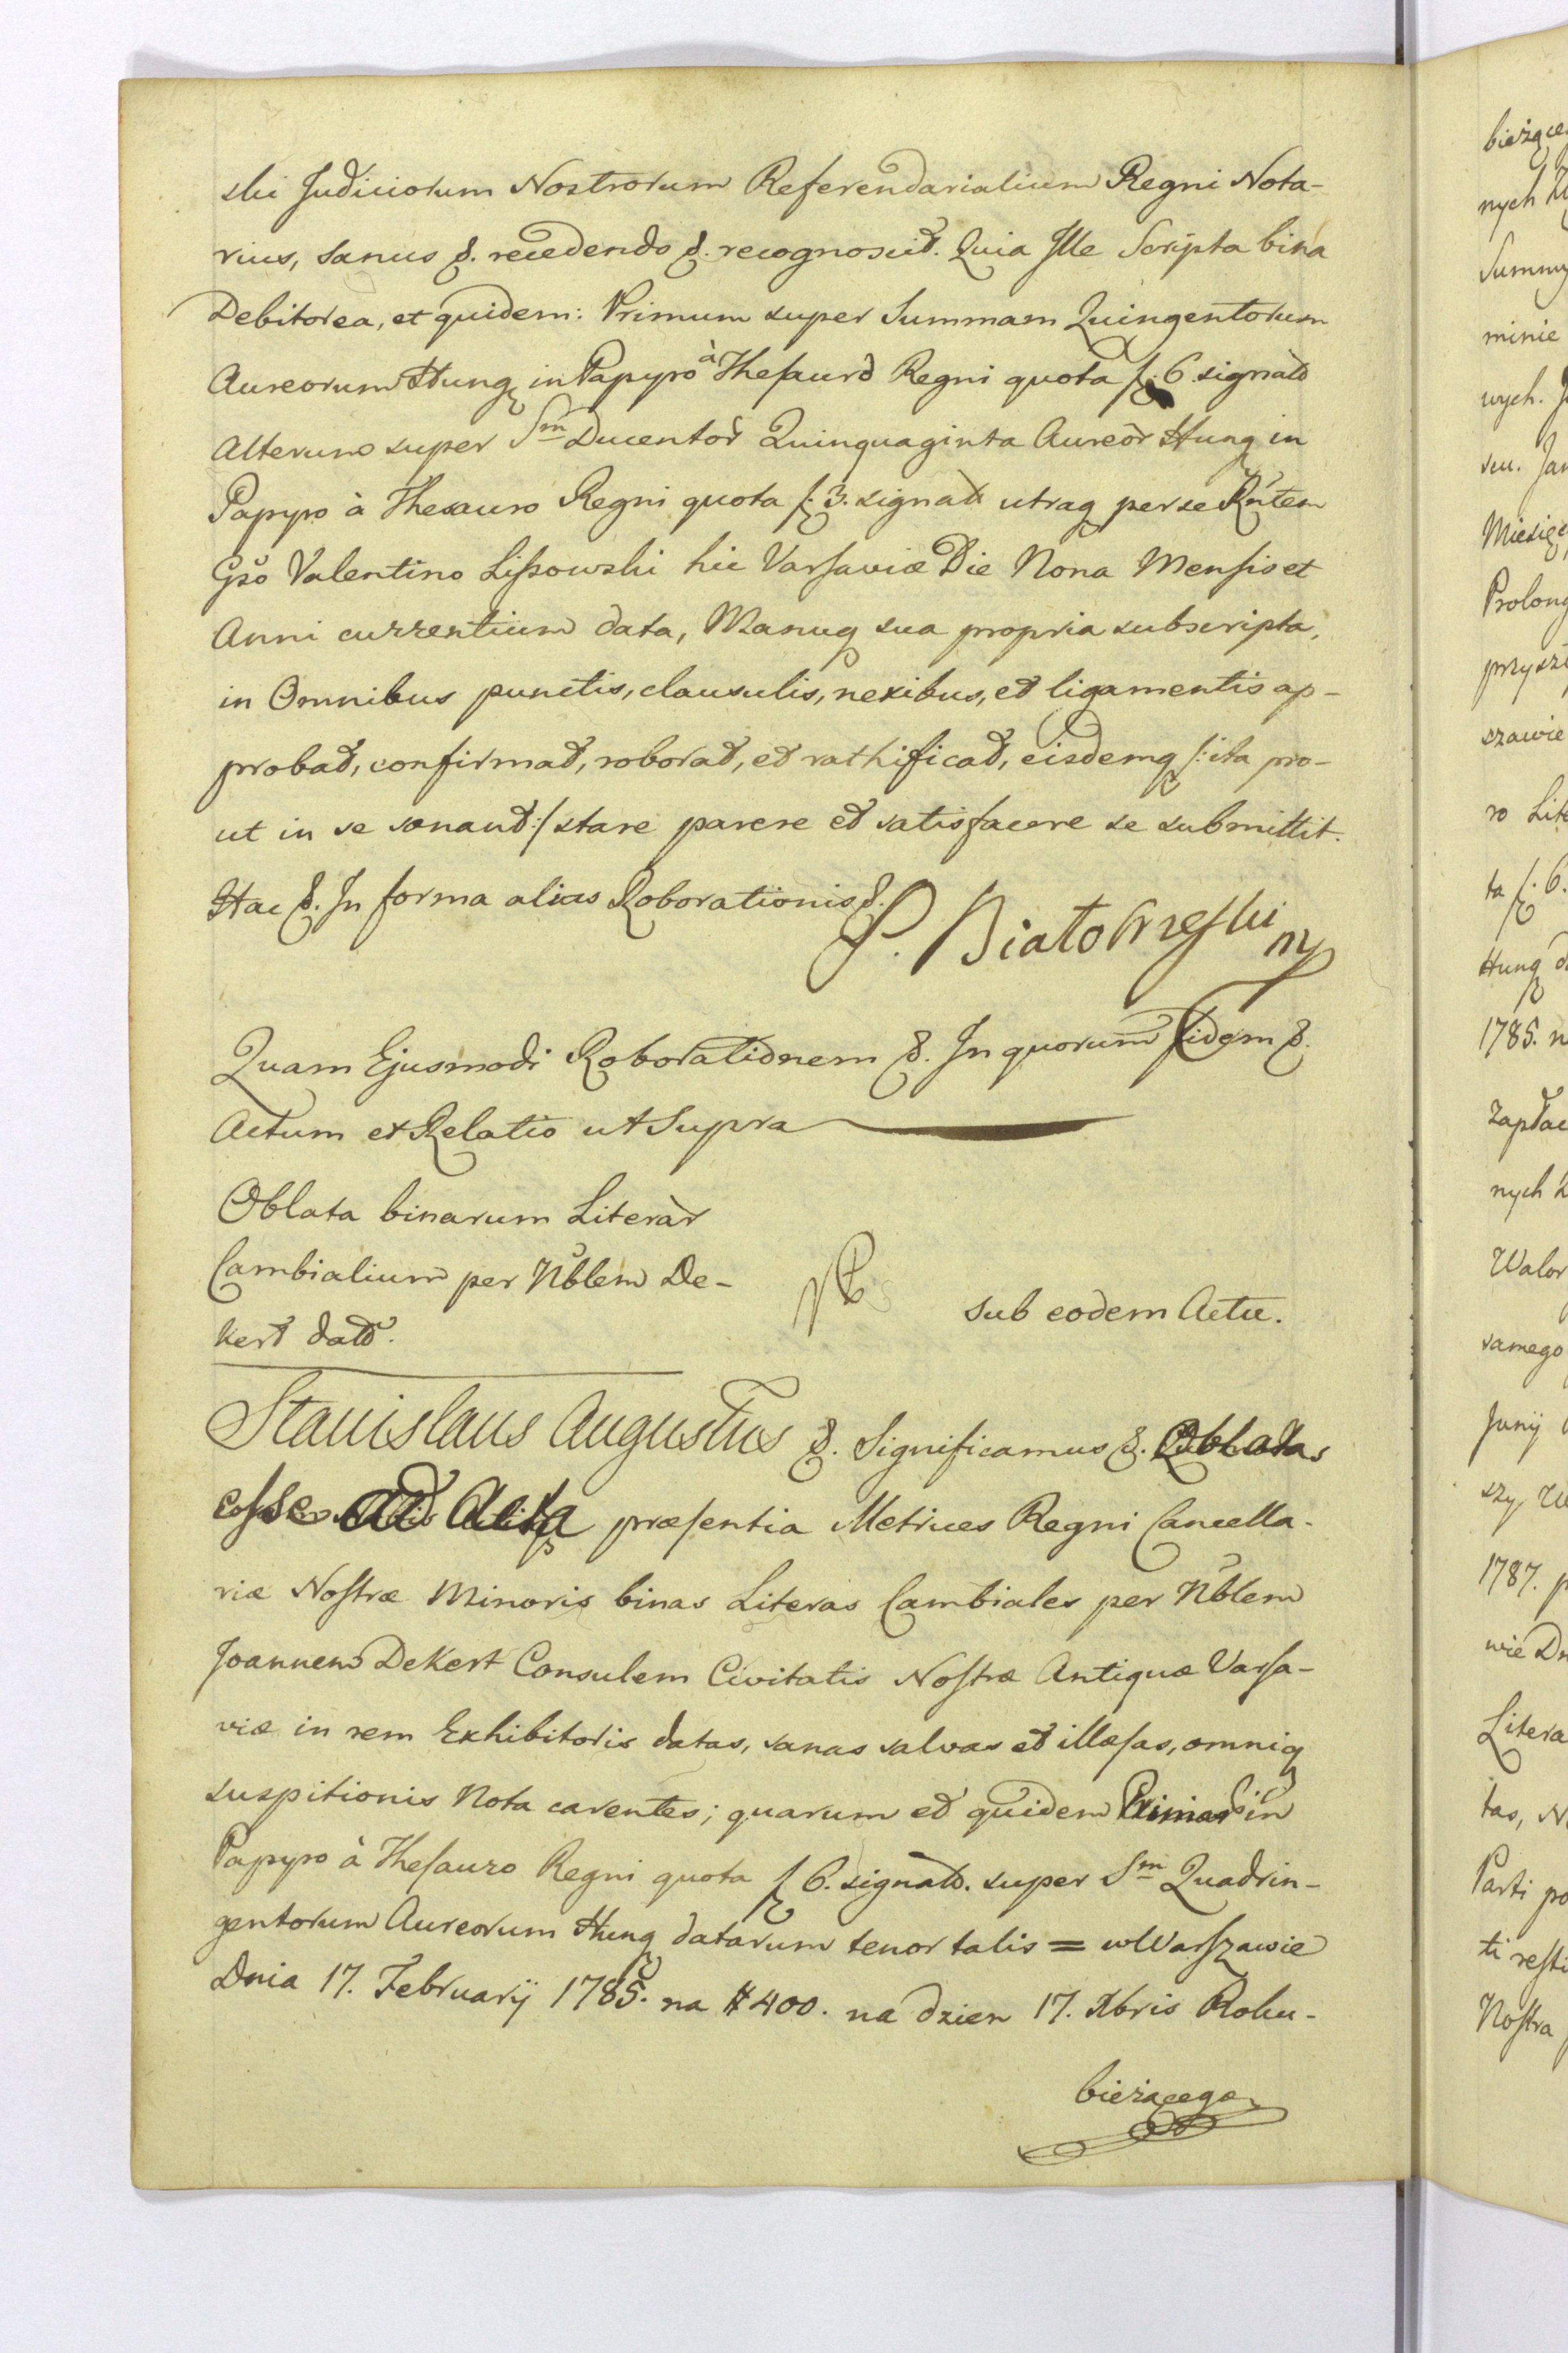 ski Judiciorum Nostrorum Referendarialium Regni Nota-
rius, sanus &. recedendo &. recognovit. Quia Ille Scripta bina
Debitorea, et quidem: Primum super Summam Quingentorum
Aureorum Hung in Papyro à Thesauro Regni quota f. 6 signato
Alterum super Sm Ducentor Quinquaginta Aureor Hung in
Papyro à Thesauro Regni quota f. 3. signat utraq per se Rntem
Gso Valentino Lissowski hic Varsaviæ Die Nona Mensis et
Anni currentium data, Manuq sua propria subscripta,
in Omnibus punctis, clausulis, nexibus, et ligamentis ap-
probat, confirmat, roborat, et rathificat, eisdemq /: ita pro-
ut in se sonant :/ stare parere et satisfacere se submittit.
Hac &. In forma alias Roborationis &.
P. Białobrzeski
mp
Quam Ejusmodi Roborationem &. In quorum fidem &.
Actum et Relatio ut Supra
Oblata binarum Literàr
Cambialium per Nblem De-
kert dat.
sub eodem Actu.
Stanislaus Augustus &. Significamus &. Oblatas
esse ad Acta præsentia Metrices Regni Cancella-
riæ Nostræ Minoris binas Literas Cambiales per Nblem
Joannem DeKert Consulem Civitatis Nostræ Antiquæ Varsa-
viæ in rem Exhibitoris datas, sanas salvas et illæsas, omniq
suspitionis Nota carentes; quarum et quidem Primar in
Papyro à Thesauro Regni quota f 6. signato. super Sm Quadrin-
gentorum Aureorum Hung datarum tenor talis = w Warszawie
Dnia 17. Februarij 1785. na # 400. na dzien 17. Xbris Roku-
bieżącego
bieżące
nych
Summy
minie
wych.
Miesięc
Prolong
przysz
szawie
ro Lite
ta f. 6.
Hung d
1785. n
zapłac
nych
Walor
samego
Junij
szy
1787. p
wie Dn
Litera
tas, N
Parti po
ti resti
Nostra